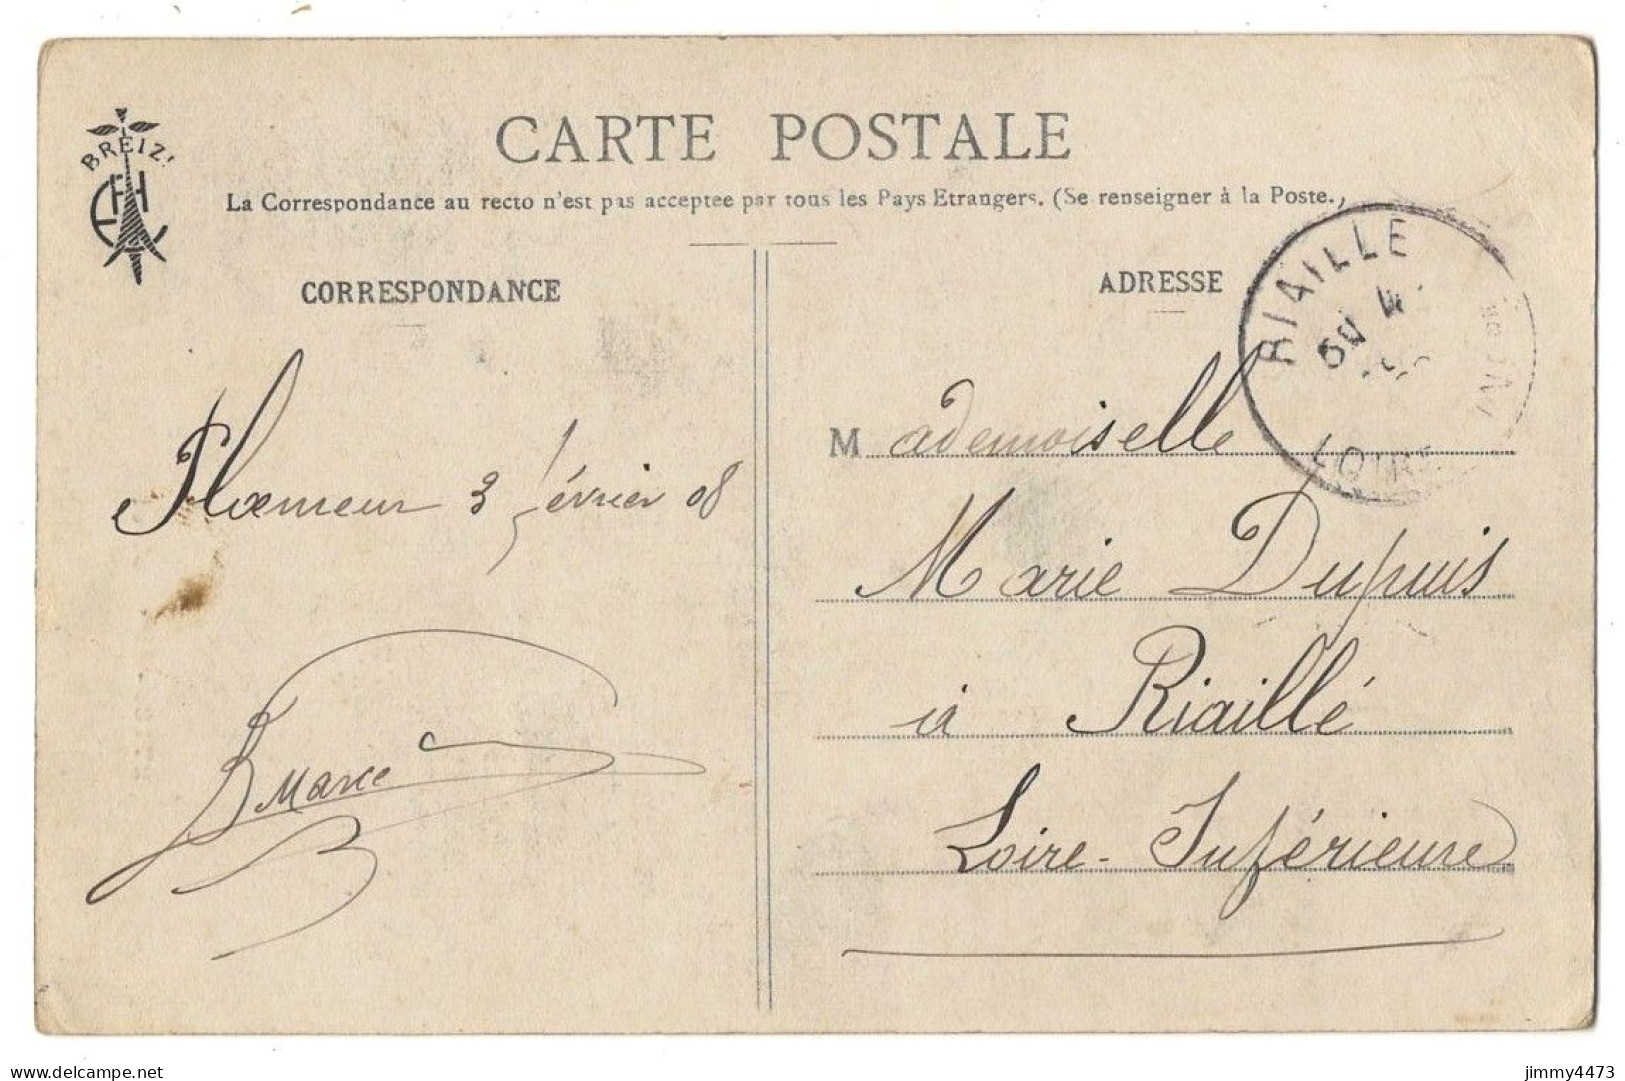 BREIZ!
CARTE POSTALE
La Correspondance au recto n'est pas acceptee par tous les Pays Etrangers. (Se renseigner à la Poste.)
CORRESPONDANCE
ADRESSE
RIAILLE
LOIRE
Mademoiselle
Marie Dupuis
à Riaillé
Loire-Inférieure
Ploemeur 3 février 08
delcampe.net
jimmy4473